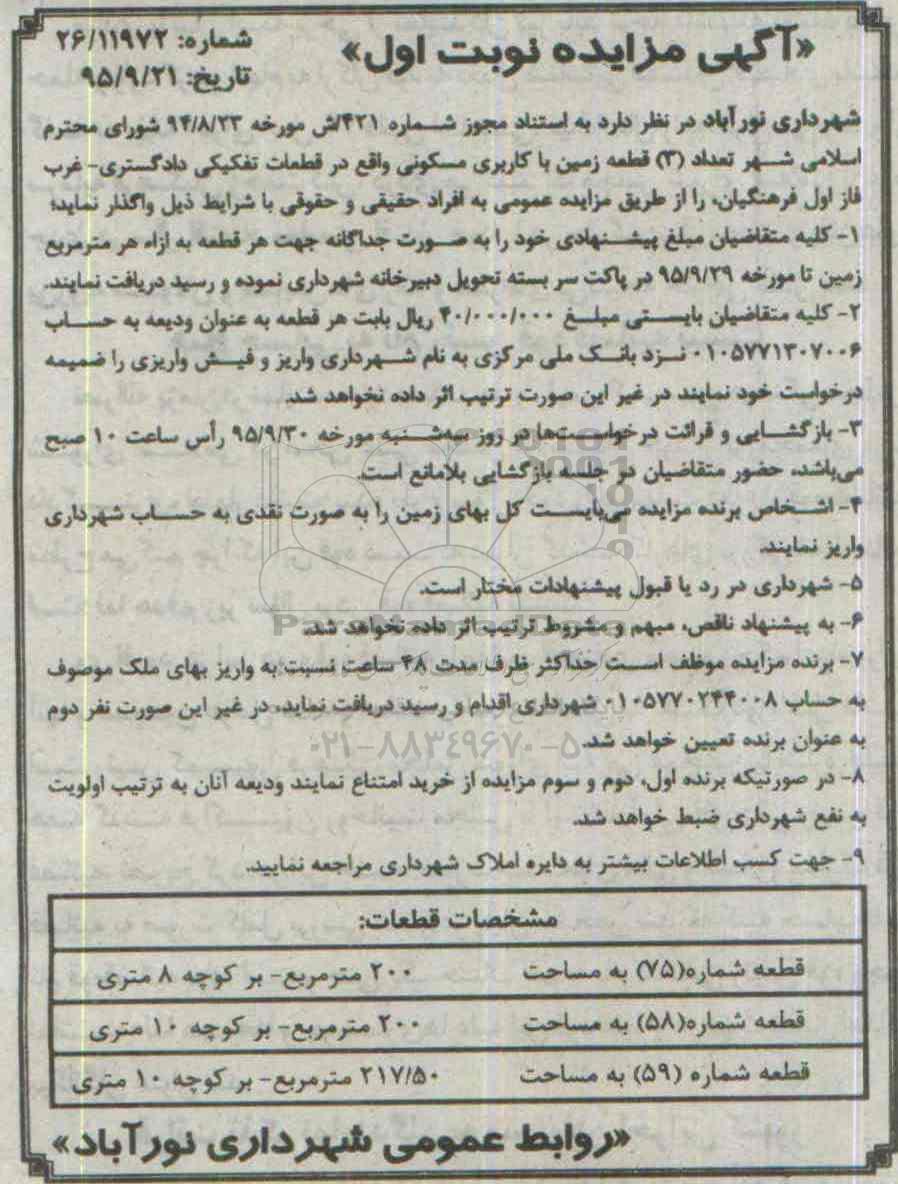 «آگهی مزایده نوبت اول»
شماره: ۲۶/۱۱۹۷۲
تاریخ: ۹۵/۹/۲۱
شهرداری نورآباد در نظر دارد به استناد مجوز شماره ۴۲۱/ش مورخه ۹۴/۸/۲۳ شورای محترم
اسلامی شهر تعداد (۳) قطعه زمین با کاربری مسکونی واقع در قطعات تفکیکی دادگستری- غرب
فاز اول فرهنگیان، را از طریق مزایده عمومی به افراد حقیقی و حقوقی با شرایط ذیل واگذار نماید؛
۱- کلیه متقاضیان مبلغ پیشنهادی خود را به صورت جداگانه جهت هر قطعه به ازاء هر مترمربع
زمین تا مورخه ۹۵/۹/۲۹ در پاکت سر بسته تحویل دبیرخانه شهرداری نموده و رسید دریافت نمایند.
۲- کلیه متقاضیان بایستی مبلغ ۴۰/۰۰۰/۰۰۰ ریال بابت هر قطعه به عنوان ودیعه به حساب
۰۱۰۵۷۷۱۳۰۷۰۰۶ نزد بانک ملی مرکزی به نام شهرداری واریز و فیش واریزی را ضمیمه
درخواست خود نمایند در غیر این صورت ترتیب اثر داده نخواهد شد.
۳- بازگشایی و قرائت درخواست‌ها در روز سه‌شنبه مورخه ۹۵/۹/۳۰ رأس ساعت ۱۰ صبح
می‌باشد، حضور متقاضیان در جلسه بازگشایی بلامانع است.
۴- اشخاص برنده مزایده می‌بایست کل بهای زمین را به صورت نقدی به حساب شهرداری
واریز نمایند.
۵- شهرداری در رد یا قبول پیشنهادات مختار است.
۶- به پیشنهاد ناقص، مبهم و مشروط ترتیب اثر داده نخواهد شد.
۷- برنده مزایده موظف است حداکثر ظرف مدت ۴۸ ساعت نسبت به واریز بهای ملک موصوف
به حساب ۰۱۰۵۷۷۰۲۴۴۰۰۸ شهرداری اقدام و رسید دریافت نماید، در غیر این صورت نفر دوم
به عنوان برنده تعیین خواهد شد.
۰۲۱-۸۸۳۴۹۶۷۰-۵
۸- در صورتیکه برنده اول، دوم و سوم مزایده از خرید امتناع نمایند ودیعه آنان به ترتیب اولویت
به نفع شهرداری ضبط خواهد شد.
۹- جهت کسب اطلاعات بیشتر به دایره املاک شهرداری مراجعه نمایید.
مشخصات قطعات:
قطعه شماره(۷۵) به مساحت ۲۰۰ مترمربع- بر کوچه ۸ متری
قطعه شماره(۵۸) به مساحت ۲۰۰ مترمربع- بر کوچه ۱۰ متری
قطعه شماره (۵۹) به مساحت ۲۱۷/۵۰ مترمربع- بر کوچه ۱۰ متری
«روابط عمومی شهرداری نورآباد»